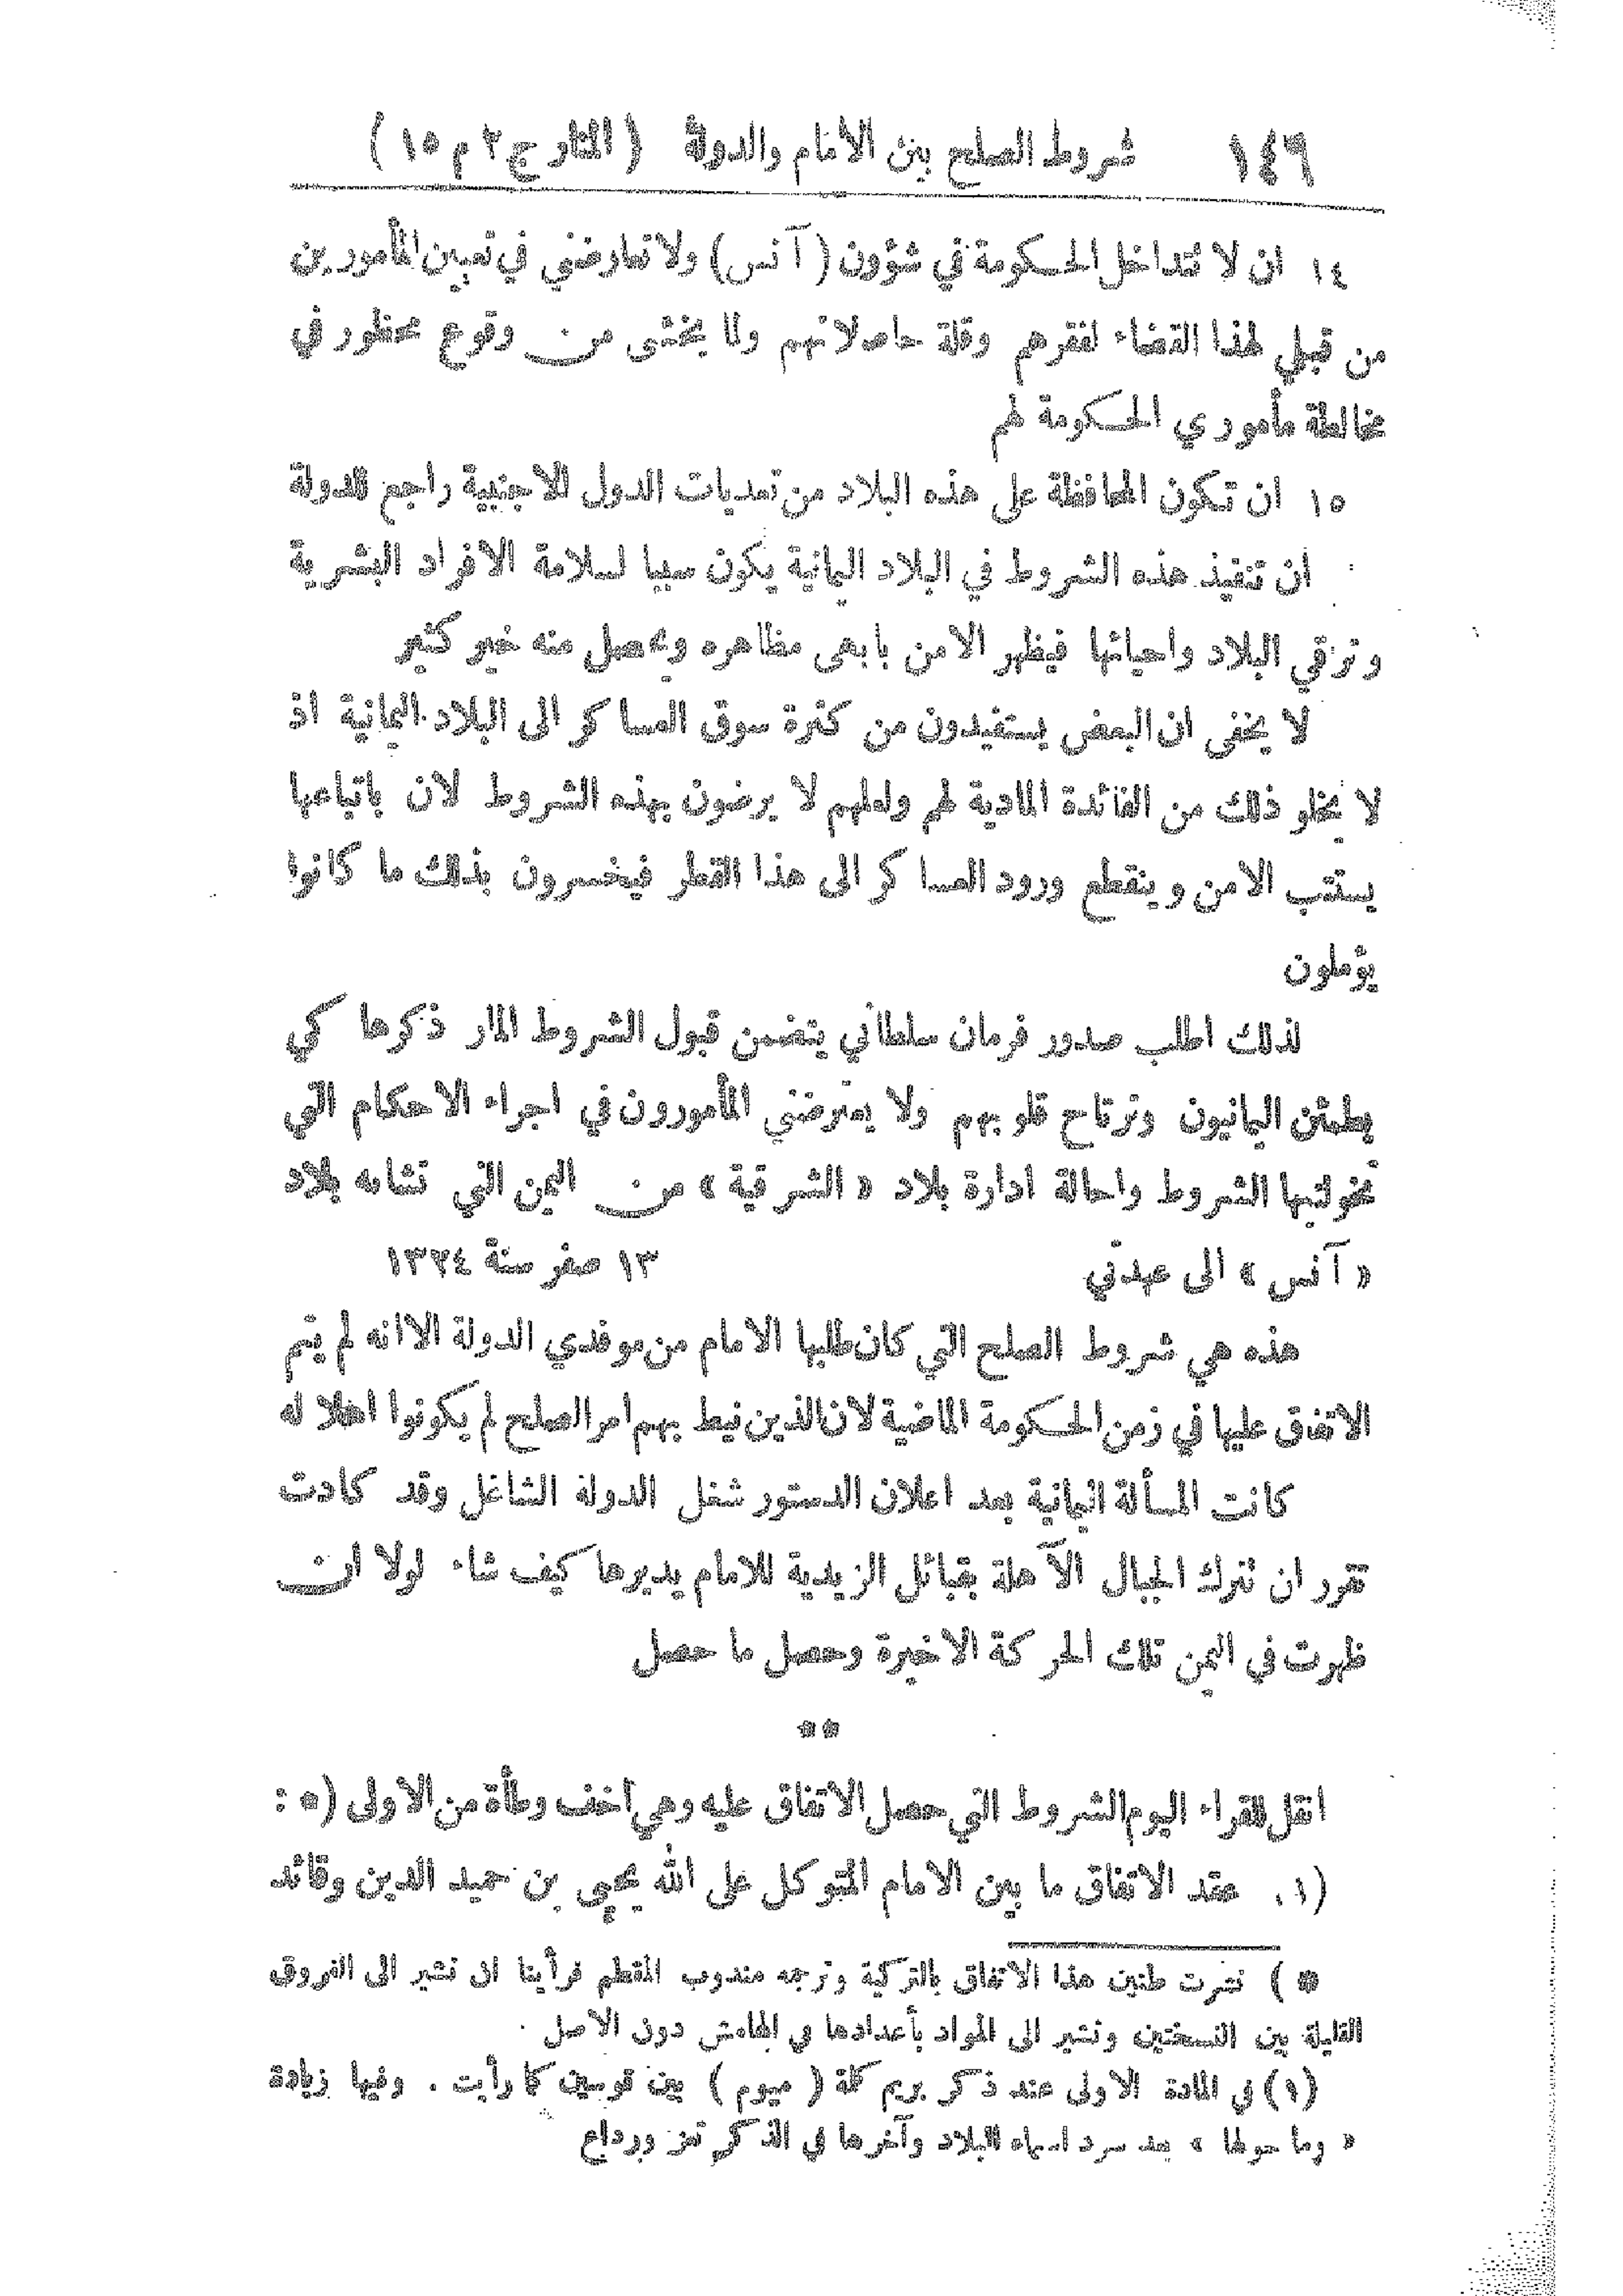 ١٤٦ شروط الصلح بين الامام والدولة ( المنار ج ٢ م ١٥ )
١٤ ان لا تتداخل الحكومة في شؤون ( آنس ) ولا تعارضني في تعيين المأمورين
من قبلي لهذا القضاء لفقرهم وقلة حاصلاتهم ولما يخشى من وقوع محظور في
مخالطة مأموري الحكومة لهم
١٥ ان تكون المحافظة على هذه البلاد من تعديات الدول الاجنبية راجع للدولة
ان تنفيذ هذه الشروط في البلاد اليمانية يكون سببا لسلامة الافراد البشرية
وترقي البلاد واحيائها فيظهر الامن بابهى مظاهره ويحصل منه خير كثير
لا يخفى ان البعض يستفيدون من كثرة سوق العساكر الى البلاد اليمانية اذ
لا يخلو ذلك من الفائدة المادية لهم ولعلهم لا يرضون بهذه الشروط لان باتباعها
يستتب الامن وينقطع ورود العساكر الى هذا القطر فيخسرون بذلك ما كانوا
يؤملون
لذلك اطلب صدور فرمان سلطاني يتضمن قبول الشروط المار ذكرها كي
يطمئن اليمانيون وترتاح قلوبهم ولا يعترضني المأمورون في اجراء الاحكام التي
تخولنيها الشروط واحالة ادارة بلاد « الشرقية » من اليمن التي تشابه بلاد
« آنس » الى عهدتي ١٣ صفر سنة ١٣٢٤
هذه هي شروط الصلح التي كان طلبها الامام من موفدي الدولة الا انه لم يتم
الاتفاق عليها في زمن الحكومة الماضية لان الذين نيط بهم امر الصلح لم يكونوا اهلا له
كانت المسألة اليمانية بعد اعلان الدستور شغل الدولة الشاغل وقد كادت
تقرر ان تترك الجبال الآهلة بقبائل الزيدية للامام يديرها كيف شاء لولا ان
ظهرت في اليمن تلك الحركة الاخيرة وحصل ما حصل
**
انقل للقراء اليوم الشروط التي حصل الاتفاق عليه وهي اخف وطأة من الاولى (* :
(١. عقد الاتفاق ما بين الامام المتوكل على الله يحيى بن حميد الدين وقائد
* ) نشرت طنين هذا الاتفاق بالتركية وترجمه مندوب المقطم فرأينا ان نشير الى الفروق
القليلة بين النسختين ونشير الى المواد بأعدادها في الهامش دون الاصل .
(١) في المادة الاولى عند ذكر بريم كلمة ( ميوم ) بين قوسين كما رأيت . وفيها زيادة
« وما حولها » بعد سرد اسماء البلاد وآخرها في الذكر تعز ورداع